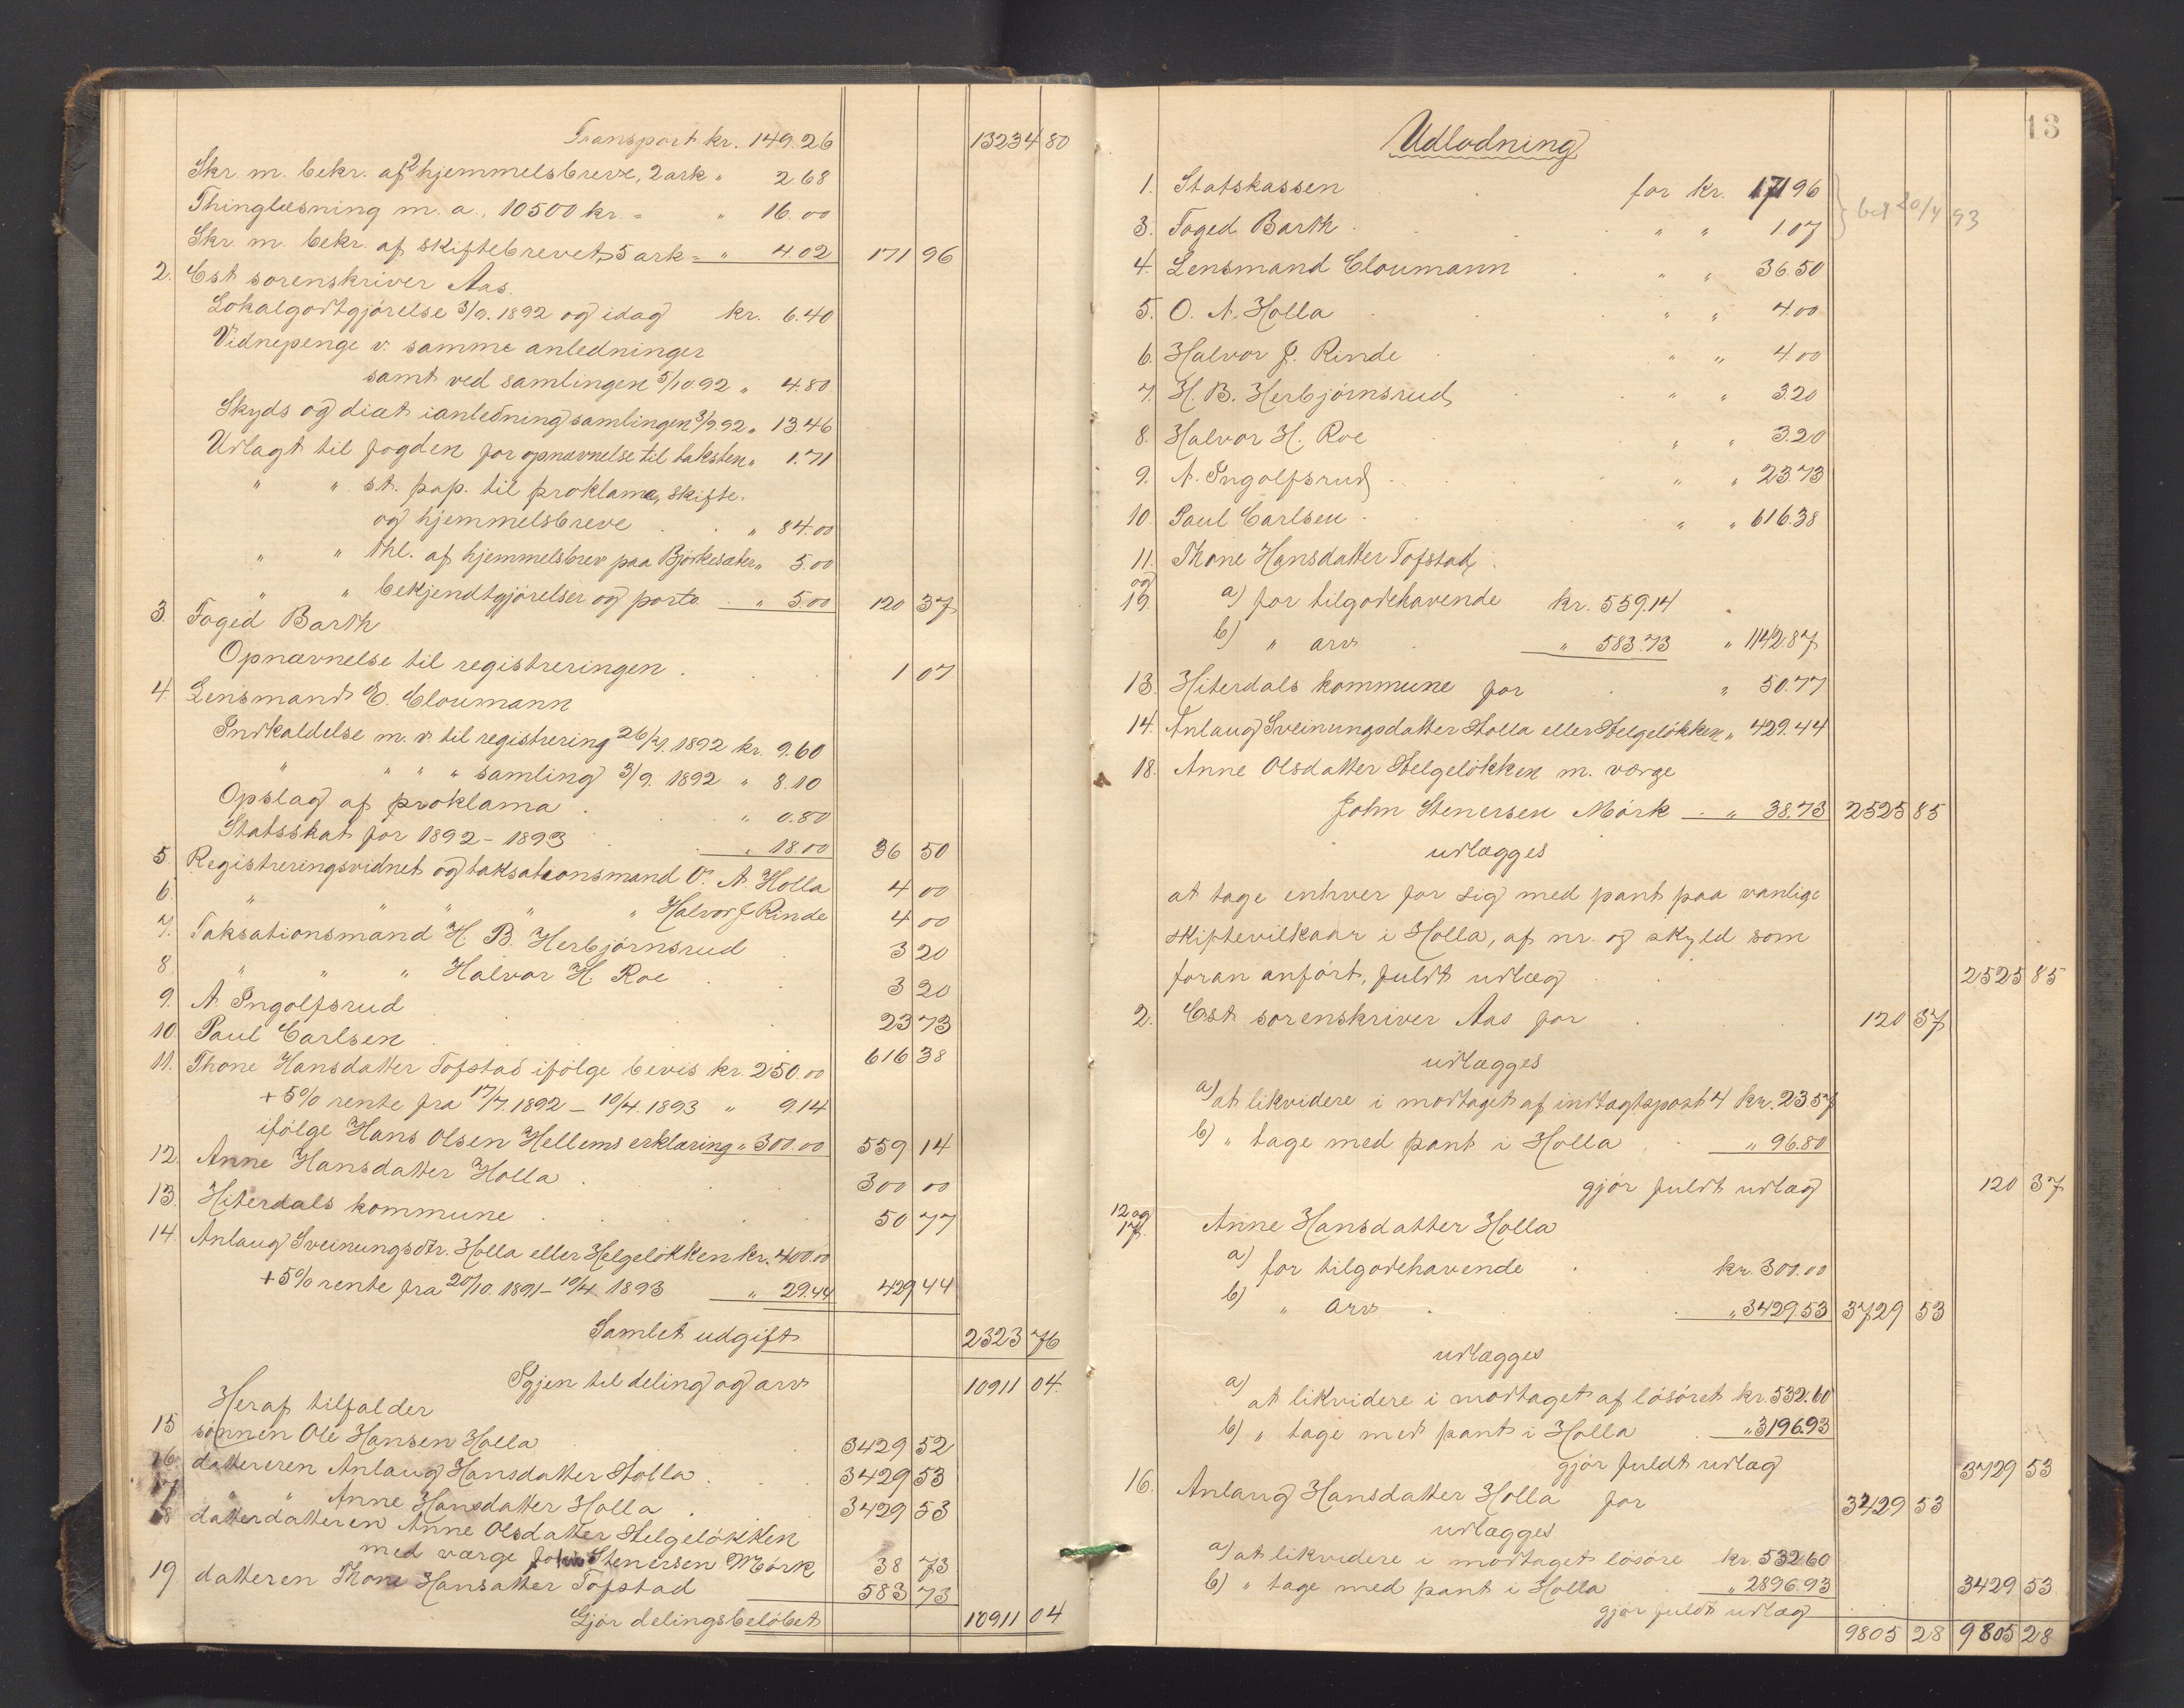 Transport kr. 149.26 13234 80
Skr. m. bekr. af 2 hjemmelsbreve, 2 ark " 2.68
Thinglæsning m. a., 10500 kr. = " 16.00
Skr. m. bekr. af skiftebrevet, 5 ark = " 4.02 171 96
2. Cst sorenskriver Aas.
Lokalgodtgjörelse 3/9. 1892 og idag kr. 6.40
Vidnepenge v. samme anledninger
samt ved samlingen 5/10 92 " 4.80
Skyds og diæt i anledning samlingen 3/9. 92 " 13.46
Udlagt til fogden for opnævnelse til taksten " 1.71
" " st. pap. til proklama, skifte-
og hjemmelsbreve . . " 84.00
" " thl. af hjemmelsbrev paa Björkesæter " 5.00
" " bekjendtgjörelser og porto . " 5.00 120 37
3. Foged Barth
Opnævnelse til registreringen . . . 1 07
4. Lensmand E. Cloumann
Indkaldelse m. v. til registrering 26/7. 1892 kr. 9.60
" " " " samling 3/9. 1892 " 8.10
Opslag af proklama . . " 0.80
Statsskat for 1892 - 1893 . . " 18.00 36 50
5. Registreringsvidnet og taksationsmand O. A. Holla 4 00
6. " " " " " Halvor J Rinde 4 00
7. Taksationsmand H. B. Herbjörnsrud . 3 20
8. " " " Halvor H. Roe . . 3 20
9. A. Ingolfsrud . . . 23 73
10. Paul Carlsen . . . 616 38
11. Thone Hansdatter Tofstad ifölge bevis kr. 250.00
+ 5% rente fra 17/7. 1892 - 10/4. 1893 " 9.14
ifölge Hans Olsen Hellems erklæring " 300.00 559 14
12. Anne Hansdatter Holla . . . 300 00
13. Hiterdals kommune . . . 50 77
14. Anlaug Sveinungsdtr. Holla eller Helgelökken kr. 400.00
+ 5% rente fra 20/10. 1891 - 10/4 1893 " 29.44 429 44
Samlet udgift 2323 76
Igjen til deling og arv 10911 04.
Heraf tilfalder
15 sönnen Ole Hansen Holla . . 3429 52
16 dattereren Anlaug Hansdatter Holla . . 3429 53
17 " " Anne Hansdatter Holla . . 3429 53
18 datterdatteren Anne Olsdatter Helgelökken
med værge John Stenersen Mörk 38 73
19 datteren Thone Hansatter Tofstad 583 73
Gjör delingsbelöbet 10911 04
13
Udlodning
1. Statskassen . . for kr. 171 96
bet 20/4 93
3. Foged Barth . . " " 1.07
4. Lensmand Cloumann . " " 36.50
5. O. A. Holla . . . " " 4.00
6. Halvor J. Rinde . . " " 4.00
7. H. B. Herbjörnsrud . . " " 3.20
8. Halvor H. Roe . . " " 3.20
9. A. Ingolfsrud . . " " 23.73
10. Paul Carlsen . . " " 616.38
11. Thone Hansdatter Tofstad .
og
19. a) for tilgodehavende kr. 559.14
b) " arv . " 583.73 " 1142.87
13. Hiterdals kommune for . " 50.77
14. Anlaug Sveinungsdatter Holla eller Helgelökken " 429.44
18. Anne Olsdatter Helgelökken m. værge
John Stenersen Mörk . " 38.73 2525 85
udlægges
at tage enhver for sig med pant paa vanlige
skiftevilkaar i Holla, af nr. og skyld som
foran anfört, fuldt udlæg . 2525 85
2. Cst sorenskriver Aas for . . 120 37
udlægges
a) at likvidere i modtaget af indtægtspost 4 kr. 23.57
b) " tage med pant i Holla . " 96.80
gjör fuldt udlæg 120 37
12 og
17. Anne Hansdatter Holla
a) for tilgodehavende . kr. 300.00
b) " arv . . " 3429.53 3729 53
udlægges
a) at likvidere i modtaget af lösöret kr. 532.60
b) " tage med pant i Holla . " 3196.93
gjör fuldt udlæg 3729 53
16. Anlaug Hansdatter Holla for 3429 53
udlægges
a) at likvidere i modtaget lösöre kr. 532 60
b) " tage med pant i Holla . " 2896.93 3429 53
gjör fuldt udlæg
9805 28 9805 28